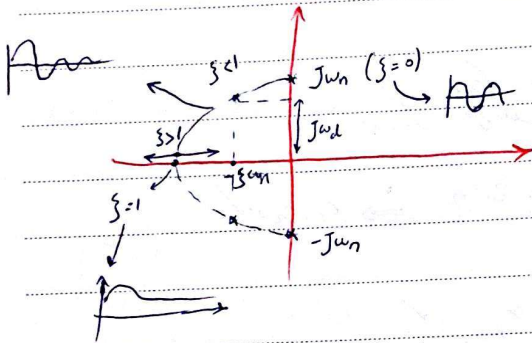 ξ<1
Jωn (ξ=0)
ξ>1
Jωd
-ξωn
ξ=1
-Jωn